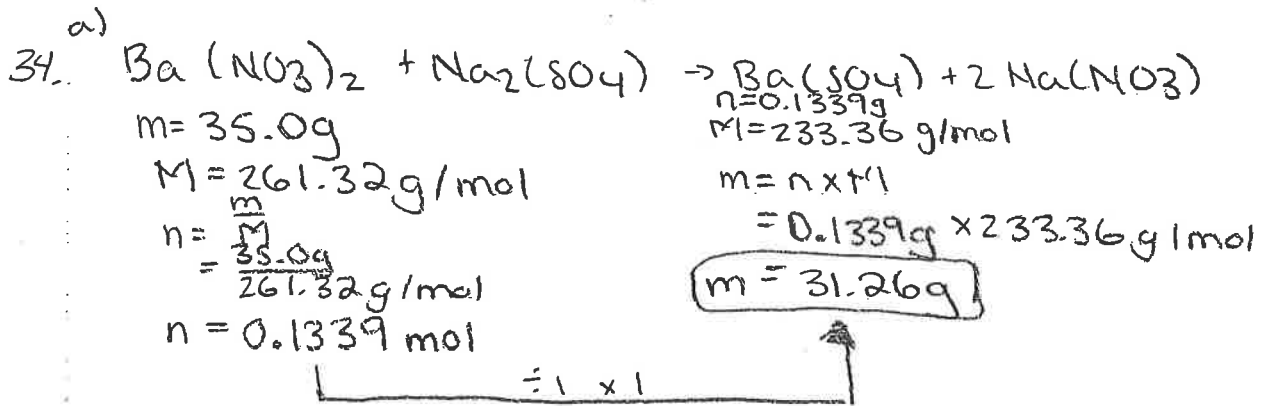 a)
34. Ba (NO3)2 + Na2(SO4) → Ba(SO4) + 2 Na(NO3)
m= 35.0g
M= 261.32g/mol
n= m/M
= 35.0g/261.32g/mol
n = 0.1339 mol
n=0.1339g
M=233.36 g/mol
m= n x M
= 0.1339g x 233.36g/mol
m = 31.26g
÷1 x 1